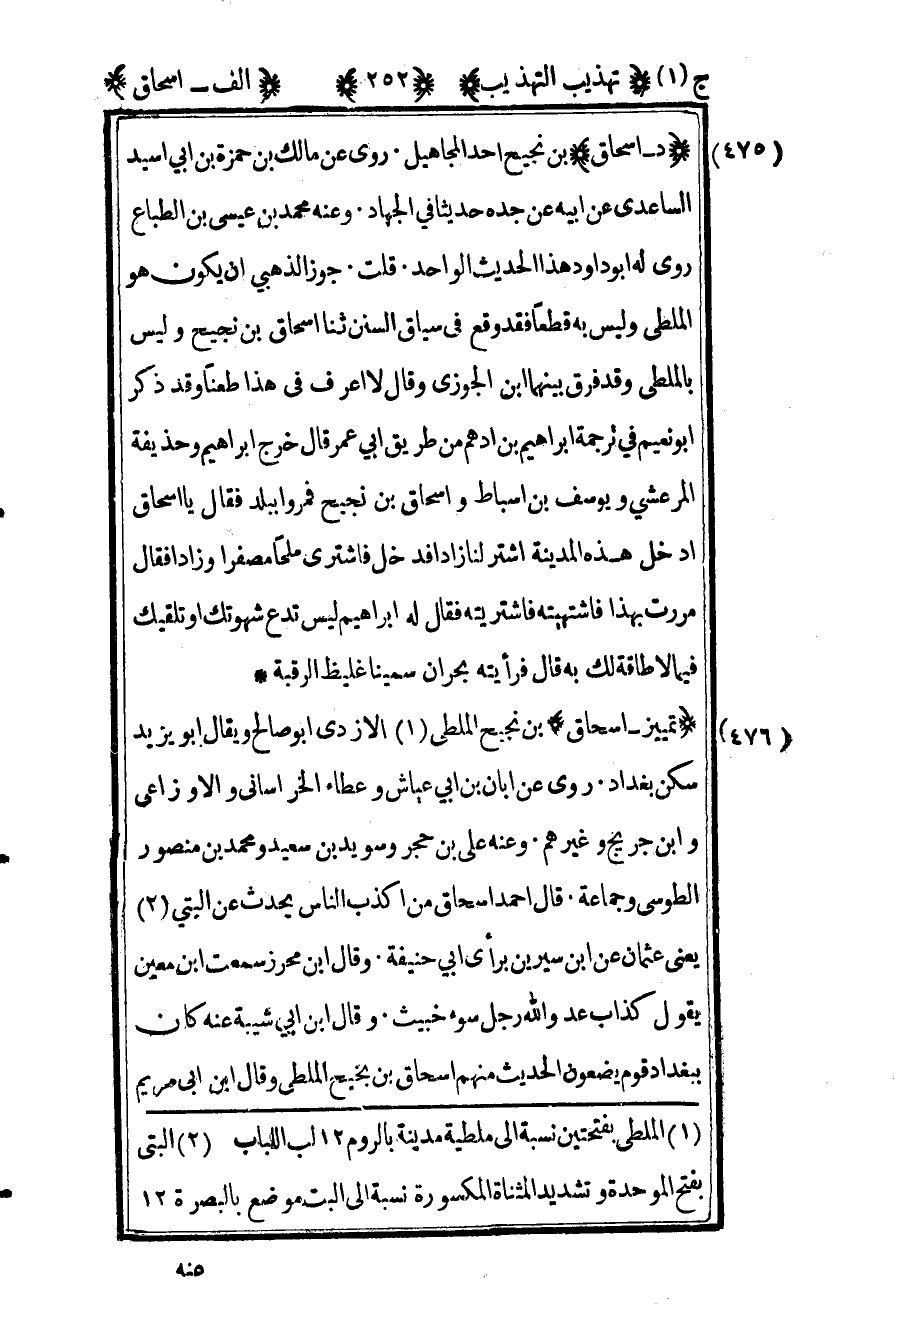 ج (١) ﴿ تهذيب التهذيب ﴾ ﴿ ٢٥٢ ﴾ ﴿ الف ـ اسحاق ﴾
(٤٧٥) ﴿ د ـ اسحاق ﴾ بن نجيح احد المجاهيل . روى عن مالك بن حمزة بن ابي اسيد
الساعدى عن ابيه عن جده حديثا في الجهاد . وعنه محمد بن عيسى بن الطباع
روى له ابو داود هذا الحديث الواحد . قلت . جوز الذهبي ان يكون هو
الملطى وليس به قطعاً فقد وقع فى سياق السنن ثنا اسحاق بن نجيح و ليس
بالملطى وقد فرق بينهما ابن الجوزى وقال لا اعرف فى هذا طعناً وقد ذكر
ابو نعيم في ترجمة ابراهيم بن ادهم من طريق ابي عمر قال خرج ابراهيم وحذيفة
المرعشي و يوسف بن اسباط و اسحاق بن نجيح فمروا ببلد فقال يا اسحاق
ادخل هذه المدينة اشتر لنا زادا فدخل فاشترى ملحاً مصفرا وزادا فقال
مررت بهذا فاشتهيته فاشتريته فقال له ابراهيم ليس تدع شهوتك او تلقيك
فيما لا طاقة لك به قال فرأيته بحران سمينا غليظ الرقبة *
(٤٧٦) ﴿ تمييز ـ اسحاق ﴾ بن نجيح الملطى (١) الازدى ابو صالح ويقال ابو يزيد
سكن بغداد . روى عن ابان بن ابي عياش و عطاء الخراسانى و الاوزاعى
و ابن جريج و غيرهم . وعنه على بن حجر وسويد بن سعيد ومحمد بن منصور
الطوسى وجماعة . قال احمد اسحاق من اكذب الناس يحدث عن البتي (٢)
يعنى عثمان عن ابن سيرين برأى ابي حنيفة . وقال ابن محرز سمعت ابن معين
يقول كذاب عدو الله رجل سوء خبيث . و قال ابن ابي شيبة عنه كان
ببغداد قوم يضعون الحديث منهم اسحاق بن نجيح الملطى وقال ابن ابى مريم
(١) الملطى بفتحتين نسبة الى ملطية مدينة بالروم ١٢ لب اللباب (٢) البتى
بفتح الموحدة و تشديد المثناة المكسورة نسبة الى البت موضع بالبصرة ١٢
منه